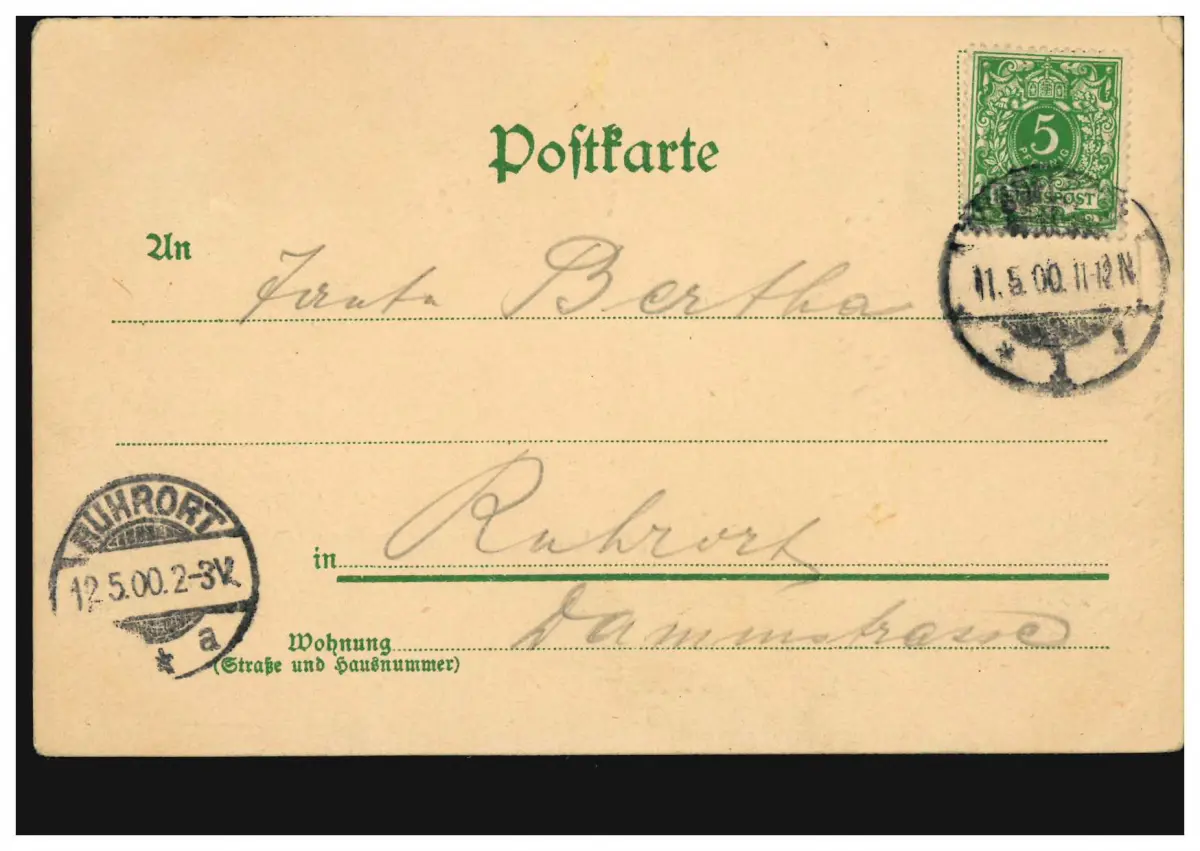 Postkarte
5
PFENNIG
REICHSPOST
11.5.00.11-12N
* 1 1
An Tante Bertha
RUHRORT
12.5.00.2-3V.
* a
in Ruhrort
Wohnung Dammstrasse
(Straße und Hausnummer)